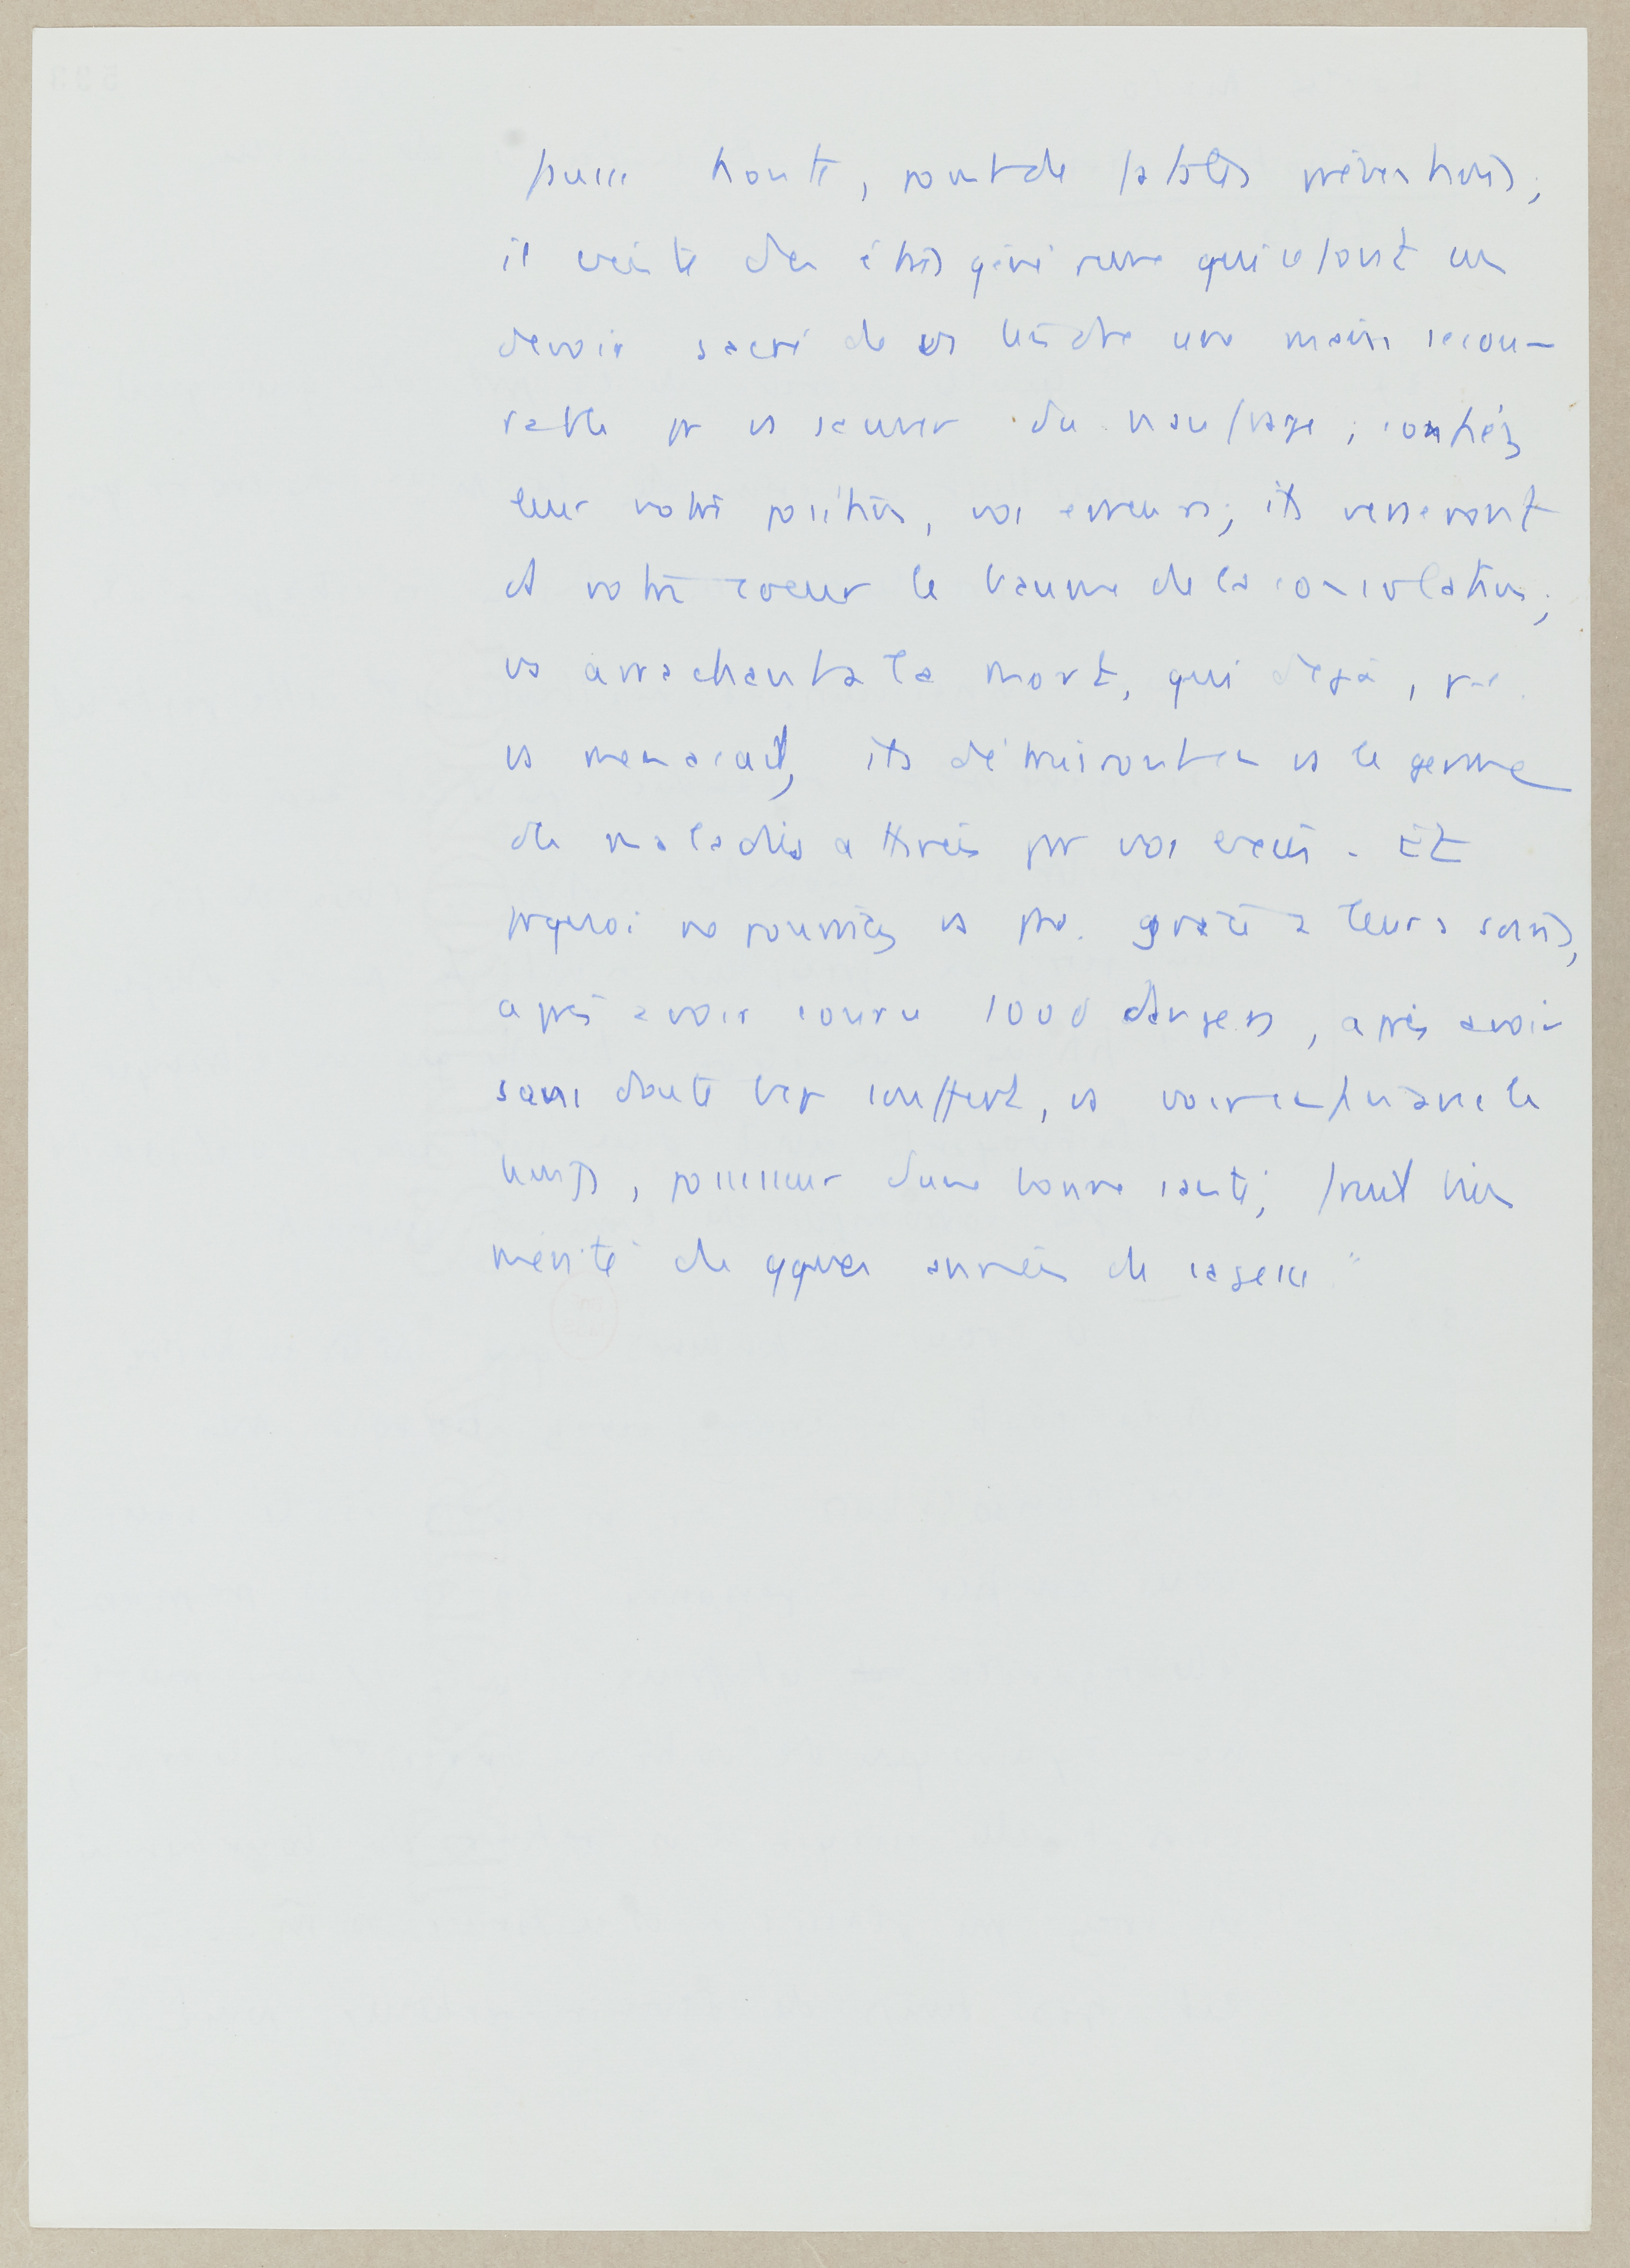 fausse honte, point de fatales préventions;
il existe des êtres généreux qui se font un
devoir sacré de vs tendre une main secou-
rable pr vs sauver du naufrage; confiez
leur votre position, vos erreurs; ils verseront
ds votre coeur le baume de la consolation;
vs arrachant à la mort, qui déjà,
vs menaçait, ils détruiront en vs le germe
de maladies attirées par vos excès. Et
prquoi ne pourriez vs pas. grâce à leurs soins,
après avoir couru 1000 dangers, après avoir
sans doute bcp souffert, vs voir enfin avec le
temps, possesseur d'une bonne santé; fruit bien
mérité de qques années de sagesse"